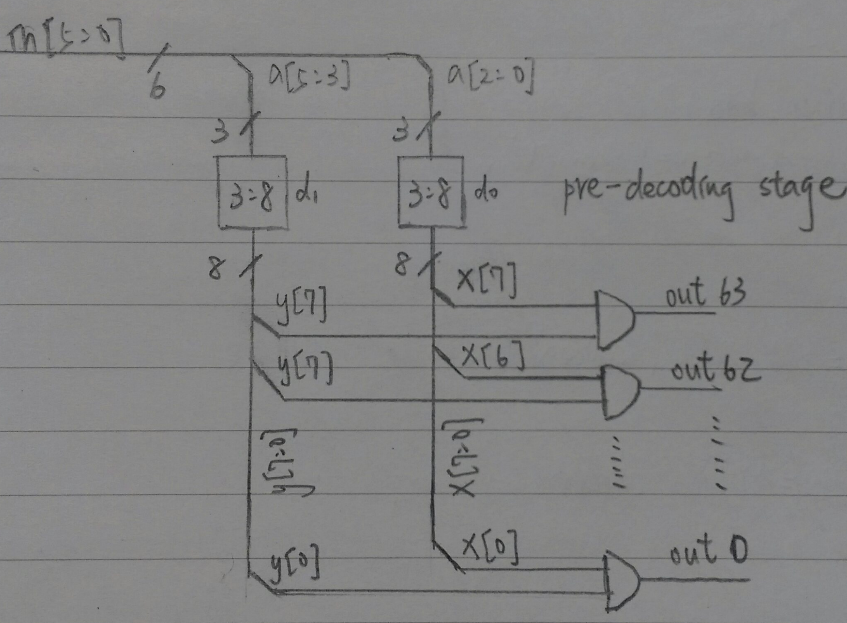 in[5:0]
6
a[5:3]
a[2:0]
3
3
3:8 d₁
3:8 d₀
pre-decoding stage
8
8
x[7]
out 63
y[7]
x[6]
out 62
y[7]
y[7:0]
x[7:0]
x[0]
out 0
y[0]